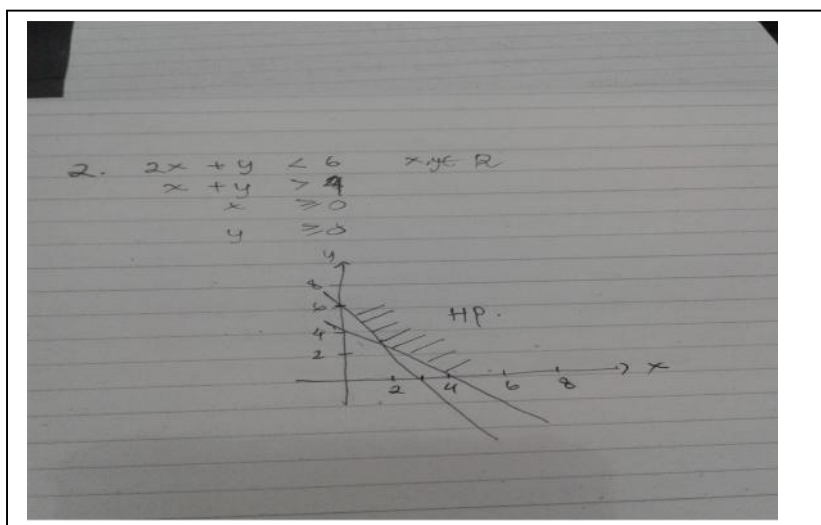 2. 2x + y < 6 x,y ∈ R
x + y > 4
x ≥ 0
y ≥ 0
y
8
6
HP.
4
2
x
2 4 6 8